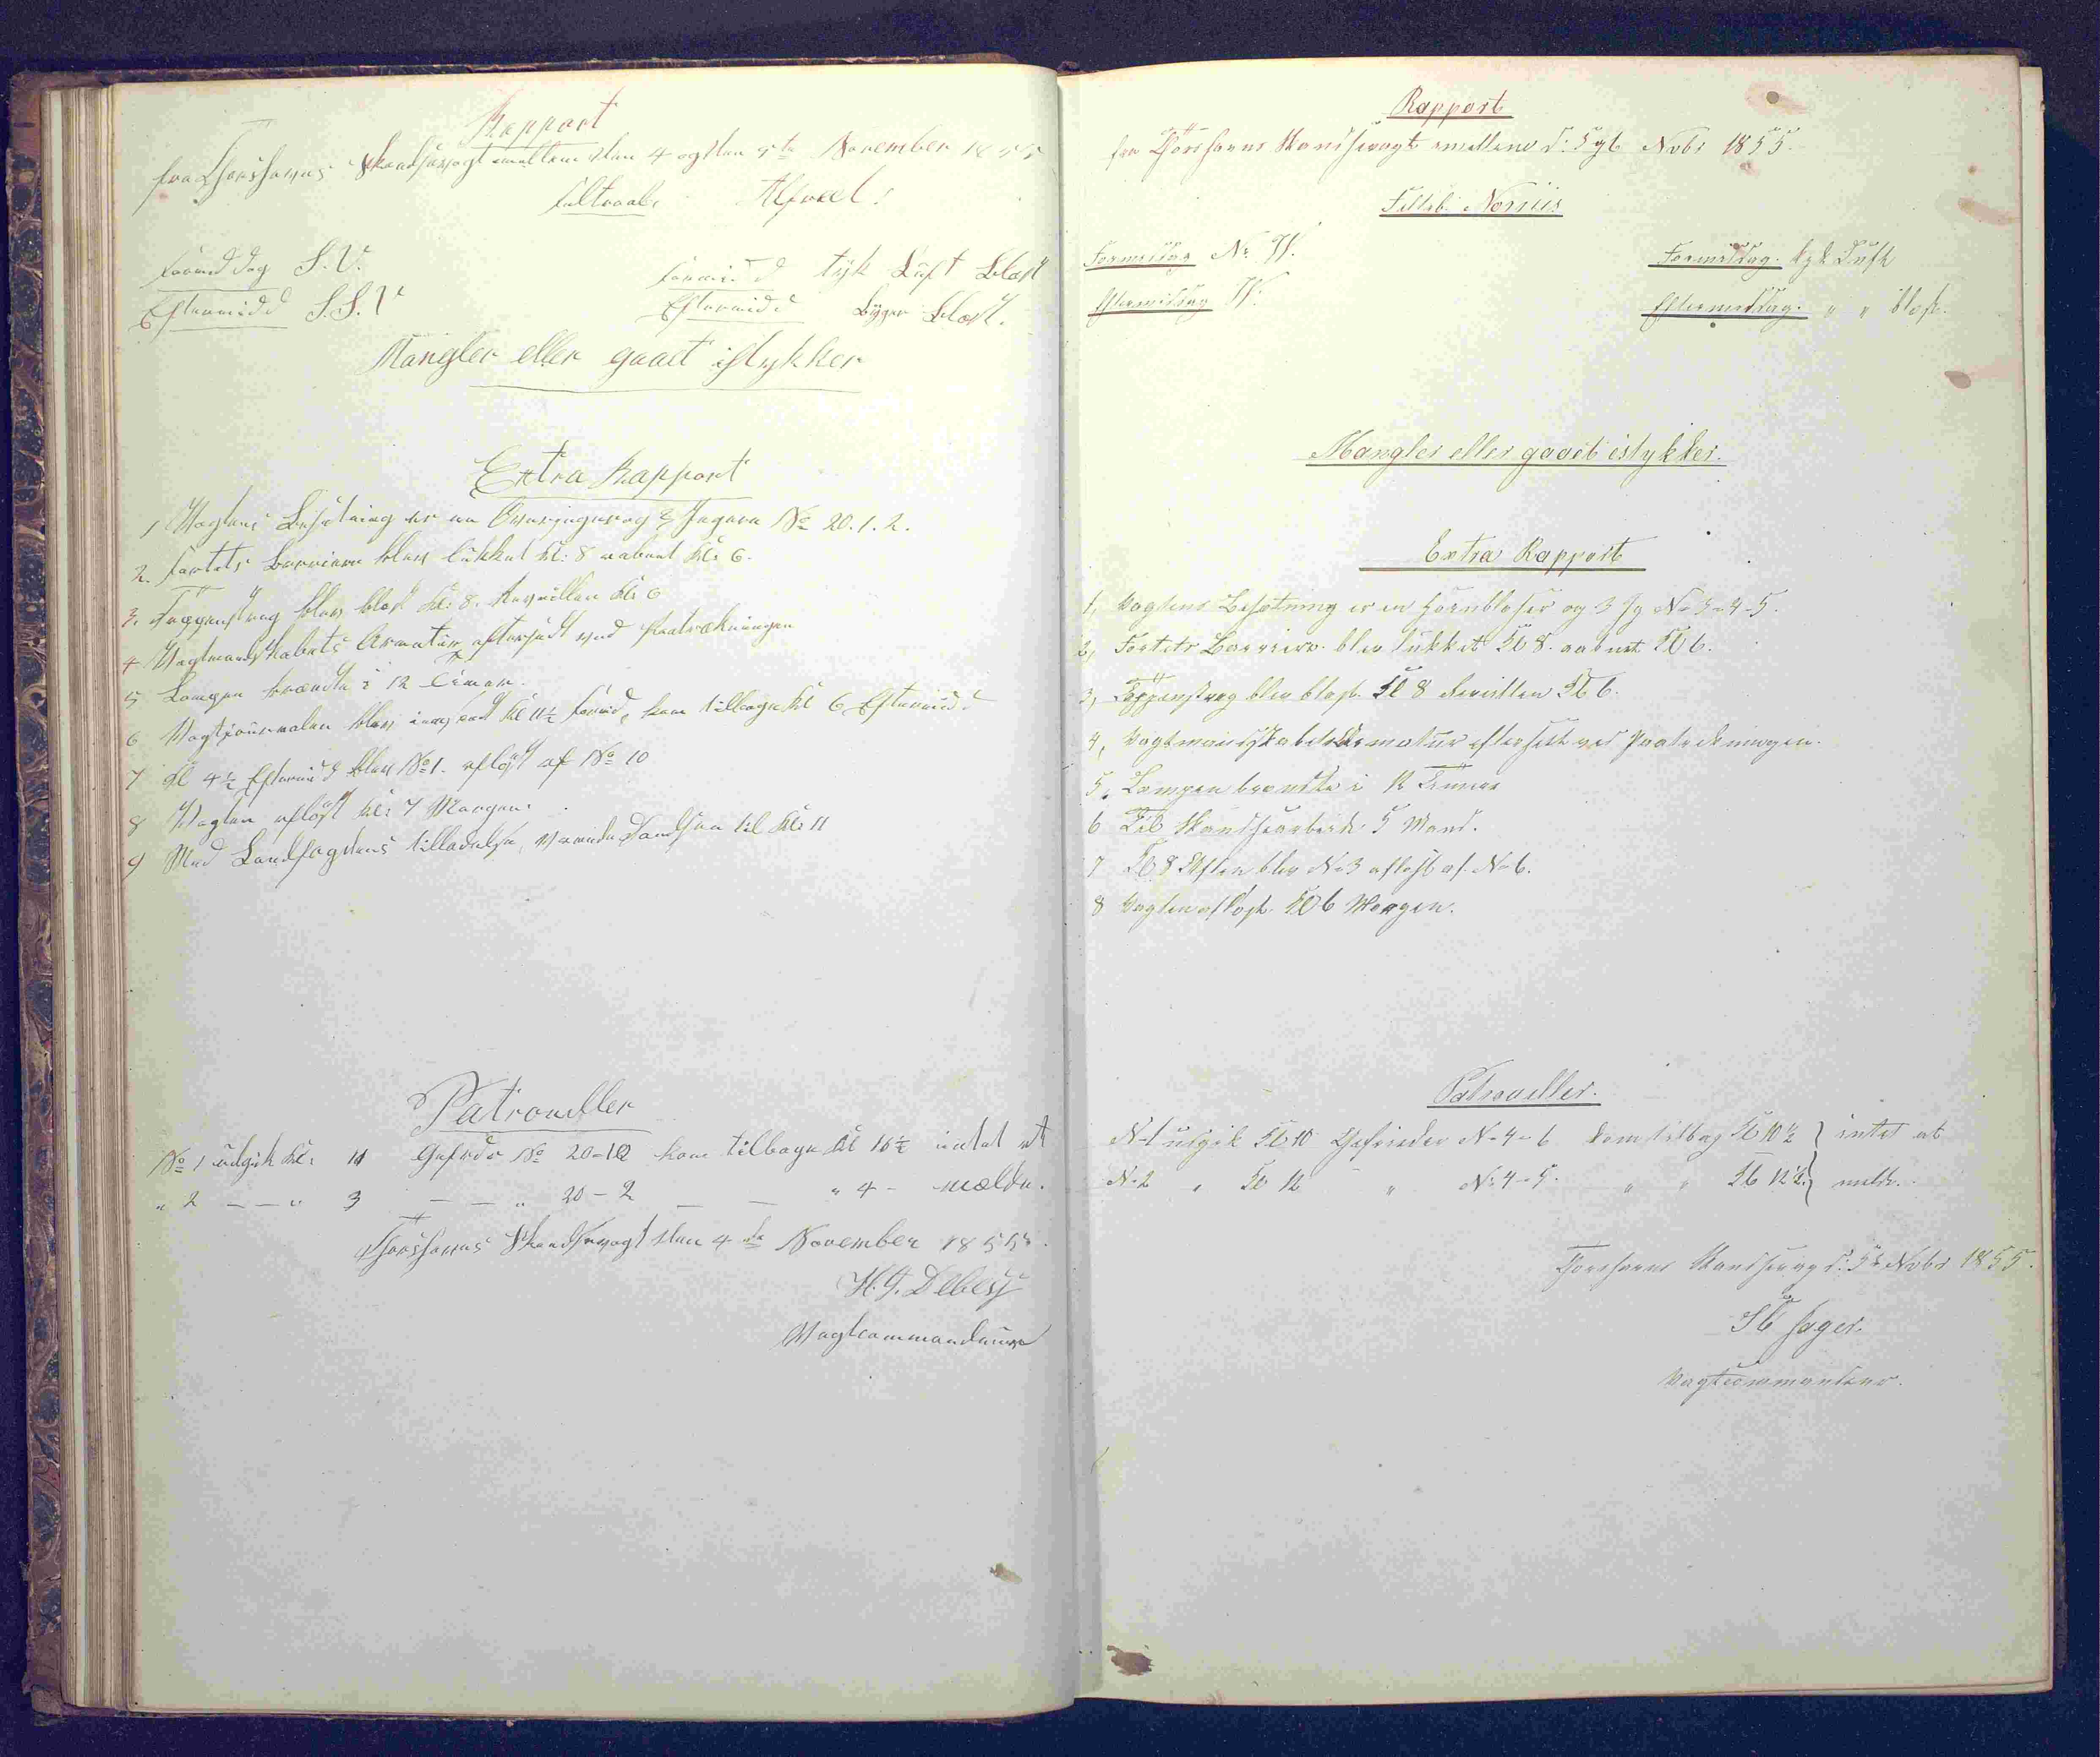 Rapport
fra Thorshavns Skandsevagt mellem den 4 og den 5te November 1855
Feltraab: Alfred.
Formiddag S.V.
Formidd tyk Luft Blæst
Eftermidd S.S.V
Eftermidd Byger Blæst.
Mangler eller gaaet istykker
Extra Rapport
1 Vagtens Besætning er en Overjæger og 3 Jægere No 20.1.2.
2. Fortets Barriere blev lukket Kl: 8 aabnet Kl: 6.
3. Tappenstreg blev blæst Kl: 8. Reveillen Kl: 6
4 Vagtmandskabets Armatur efterseet ved Fratrækningen
5 Lampen brændte i 12 Timer.
6 Vagtjournalen blev indsendt Kl 11½ Formd, kom tilbage Kl 6 Eftermidd
7 Kl 4½ Eftermid blev No 1. afløst af No 10
8 Vagten afløst Kl: 7 Morgen.
9 Med Landfogdens tilladelse, varede Dandsen til Kl: 11
Patrouiller
No 1 udgik Kl: 10 Gefrdr No 20-10 kom tilbage Kl 10½ intet at
" 2 — — " 3 — — " 20-2 — " 4 - melde.
Thorshavns Skandsevagt den 4de November 1855.
H.J. Debesz
Vagtcommandeur
Rapport
fra Thorshavns Skandsevagt imellem d: 5 og 6 Nvbr 1855.
Feltrb: Noriüs
Formiddag N. W.
Formiddag. tyk Luft
Eftermiddag W.
Eftermiddag. " " blæst.
Mangler eller gaaet istykker.
Extra Rapport
1, Vagtens Besætning er en Hornblæser og 3 Jg No 3-4-5.
2, Fortets Barriere blev lukket Kl 8. aabnet Kl 6.
3, Tappenstreg blev blæst Kl 8 Reveillen Kl 6.
4, Vagtmandskabets Armatur efterseet ved Fratrækningen.
5, Lampen brændte i 12 Timer
6 Til Skandsearbeide 5 Mand.
7 Kl 8 Aften blev No 3 afløst af No 6.
8 Vagten afløst Kl 6 Morgen.
Patrouiller.
No 1 udgik Kl 10 Gefreider No 4-6 kom tilbag Kl 10½ } intet at
No 2 " Kl 12 " No 4-5. " " Kl 12½ } melde.
Thorshavns Skandsevag d: 5te Nvbr 1855.
Jager.
Vagtcommandeur.